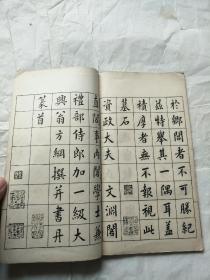 於鄉閭者不可勝紀
茲特舉其一隅耳蓋
積厚者無不報視此
墓石
資政大夫 文淵閣
直閣事內閣學士兼
禮部侍郎加一級大
興翁方綱撰并書丹
篆首